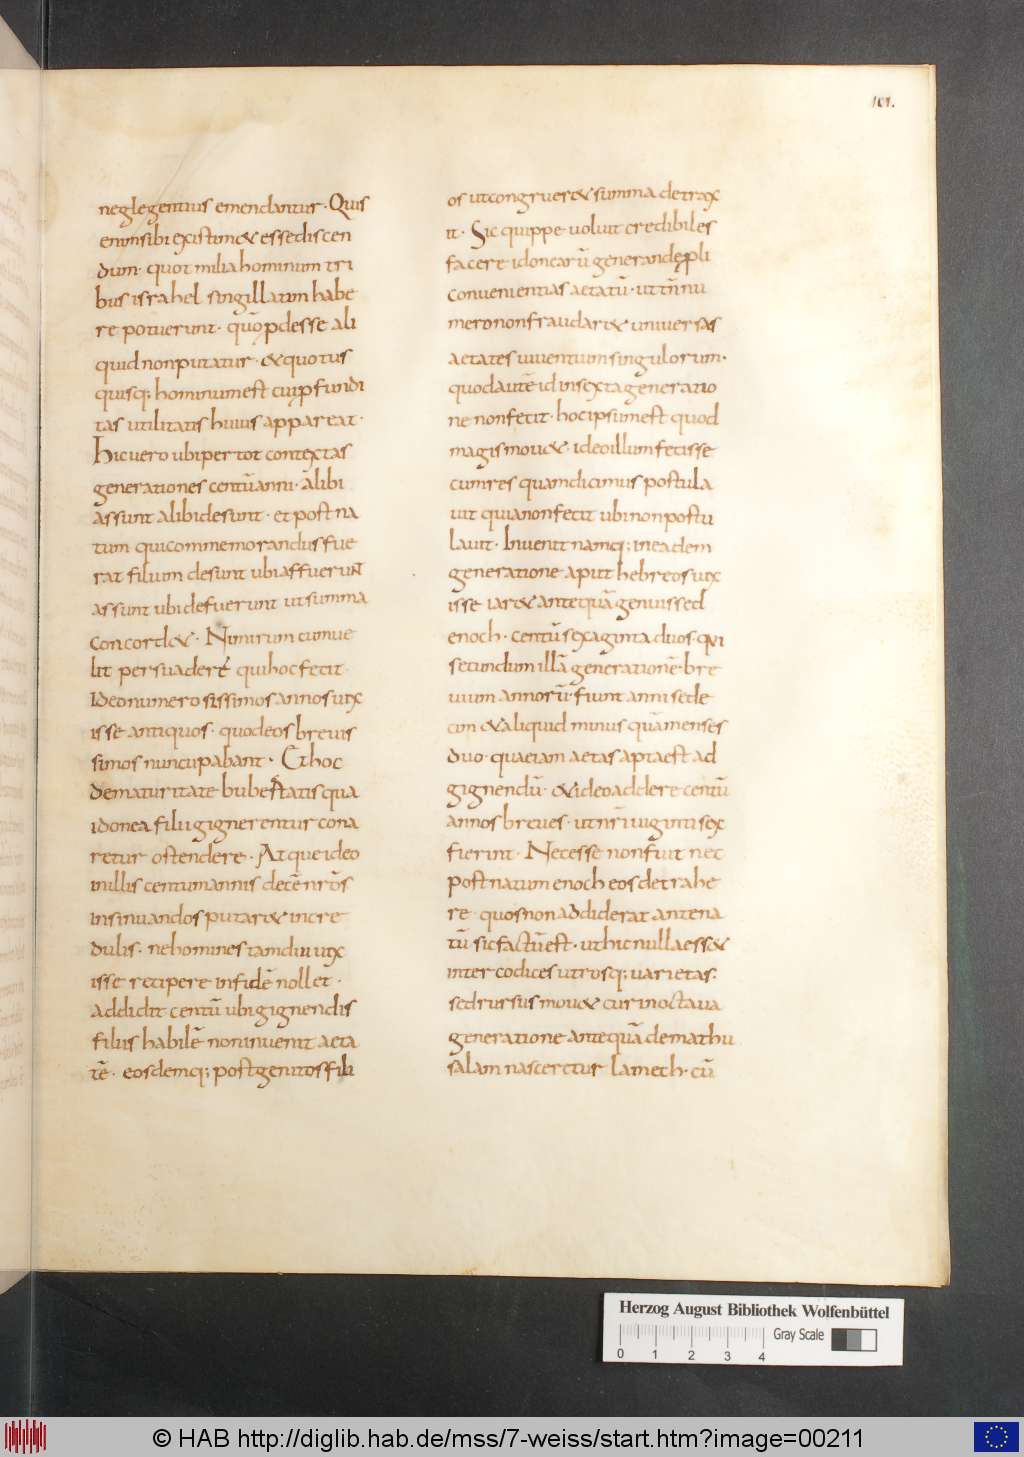 101.
neglegentius emendantur· Quis
enimsibi existim& essediscen
dum· quot milia hominum tri
bus israhel singillatim habe
re potuerunt· quōpdesse ali
quid non putatur· & quotus
quisq; hominum est cui pfundi
tas utilitatis huius appareat·
Hic uero ubi per tot contextas
generationes centū anni· alibi
assunt alibi desunt· et post na
tum qui commemorandus fue
rat filium desunt ubi affuerunt
assunt ubi defuerunt ut summa
concord&· Nimirum cum ue
lit persuadere qui hoc fecit·
Ideo numerosissimos annos uix
isse antiquos· quod eos breuis
simos nuncupabant· Et hoc
de maturitate bubertatis qua
idonea filii gignerentur cona
retur ostendere· Atque ideo
in illis centum annis decē nrōs
insinuandos putar& incre
dulis· ne homines tamdiu uix
isse recipere in fidē nollet·
addidit centū ubi gignendis
filiis habilē non inuenit aeta
tē· eosdemq; post genitos fili
os ut congruer& summa detrax
it· Sic quippe uoluit credibiles
facere idonearū generande pli
conuenientias aetatū· ut tn̄ nu
mero non fraudar& uniuersas
aetates uiuentium singulorum·
quod autē id in sexta generatio
ne non fecit· hoc ipsum est quod
magis mou&· ideo illum fecisse
cum res quam dicimus postula
uit quia non fecit ubi non postu
lauit· Inuenit namq; in eadem
generatione aput hebreos uix
isse iar& antequā genuissed
enoch· centū sexaginta duos qui
secundum illā generationē bre
uium annorū· fiunt anni sede
cim & aliquid minus quā menses
duo· quae iam aetas apta est ad
gignendū· & ideo addere centū
annos breues· ut nr̄i uiginti sex
fierint· Necesse non fuit nec
post natum enoch eos detrahe
re quos non addiderat ante na
tū sic factū est· ut hic nulla ess&
inter codices utrosq; uarietas·
sed rursus mou& cur in octaua
generatione antequā de mathu
salam nasceretur lamech· cū
Herzog August Bibliothek Wolfenbüttel
Gray Scale
0 1 2 3 4
© HAB http://diglib.hab.de/mss/7-weiss/start.htm?image=00211